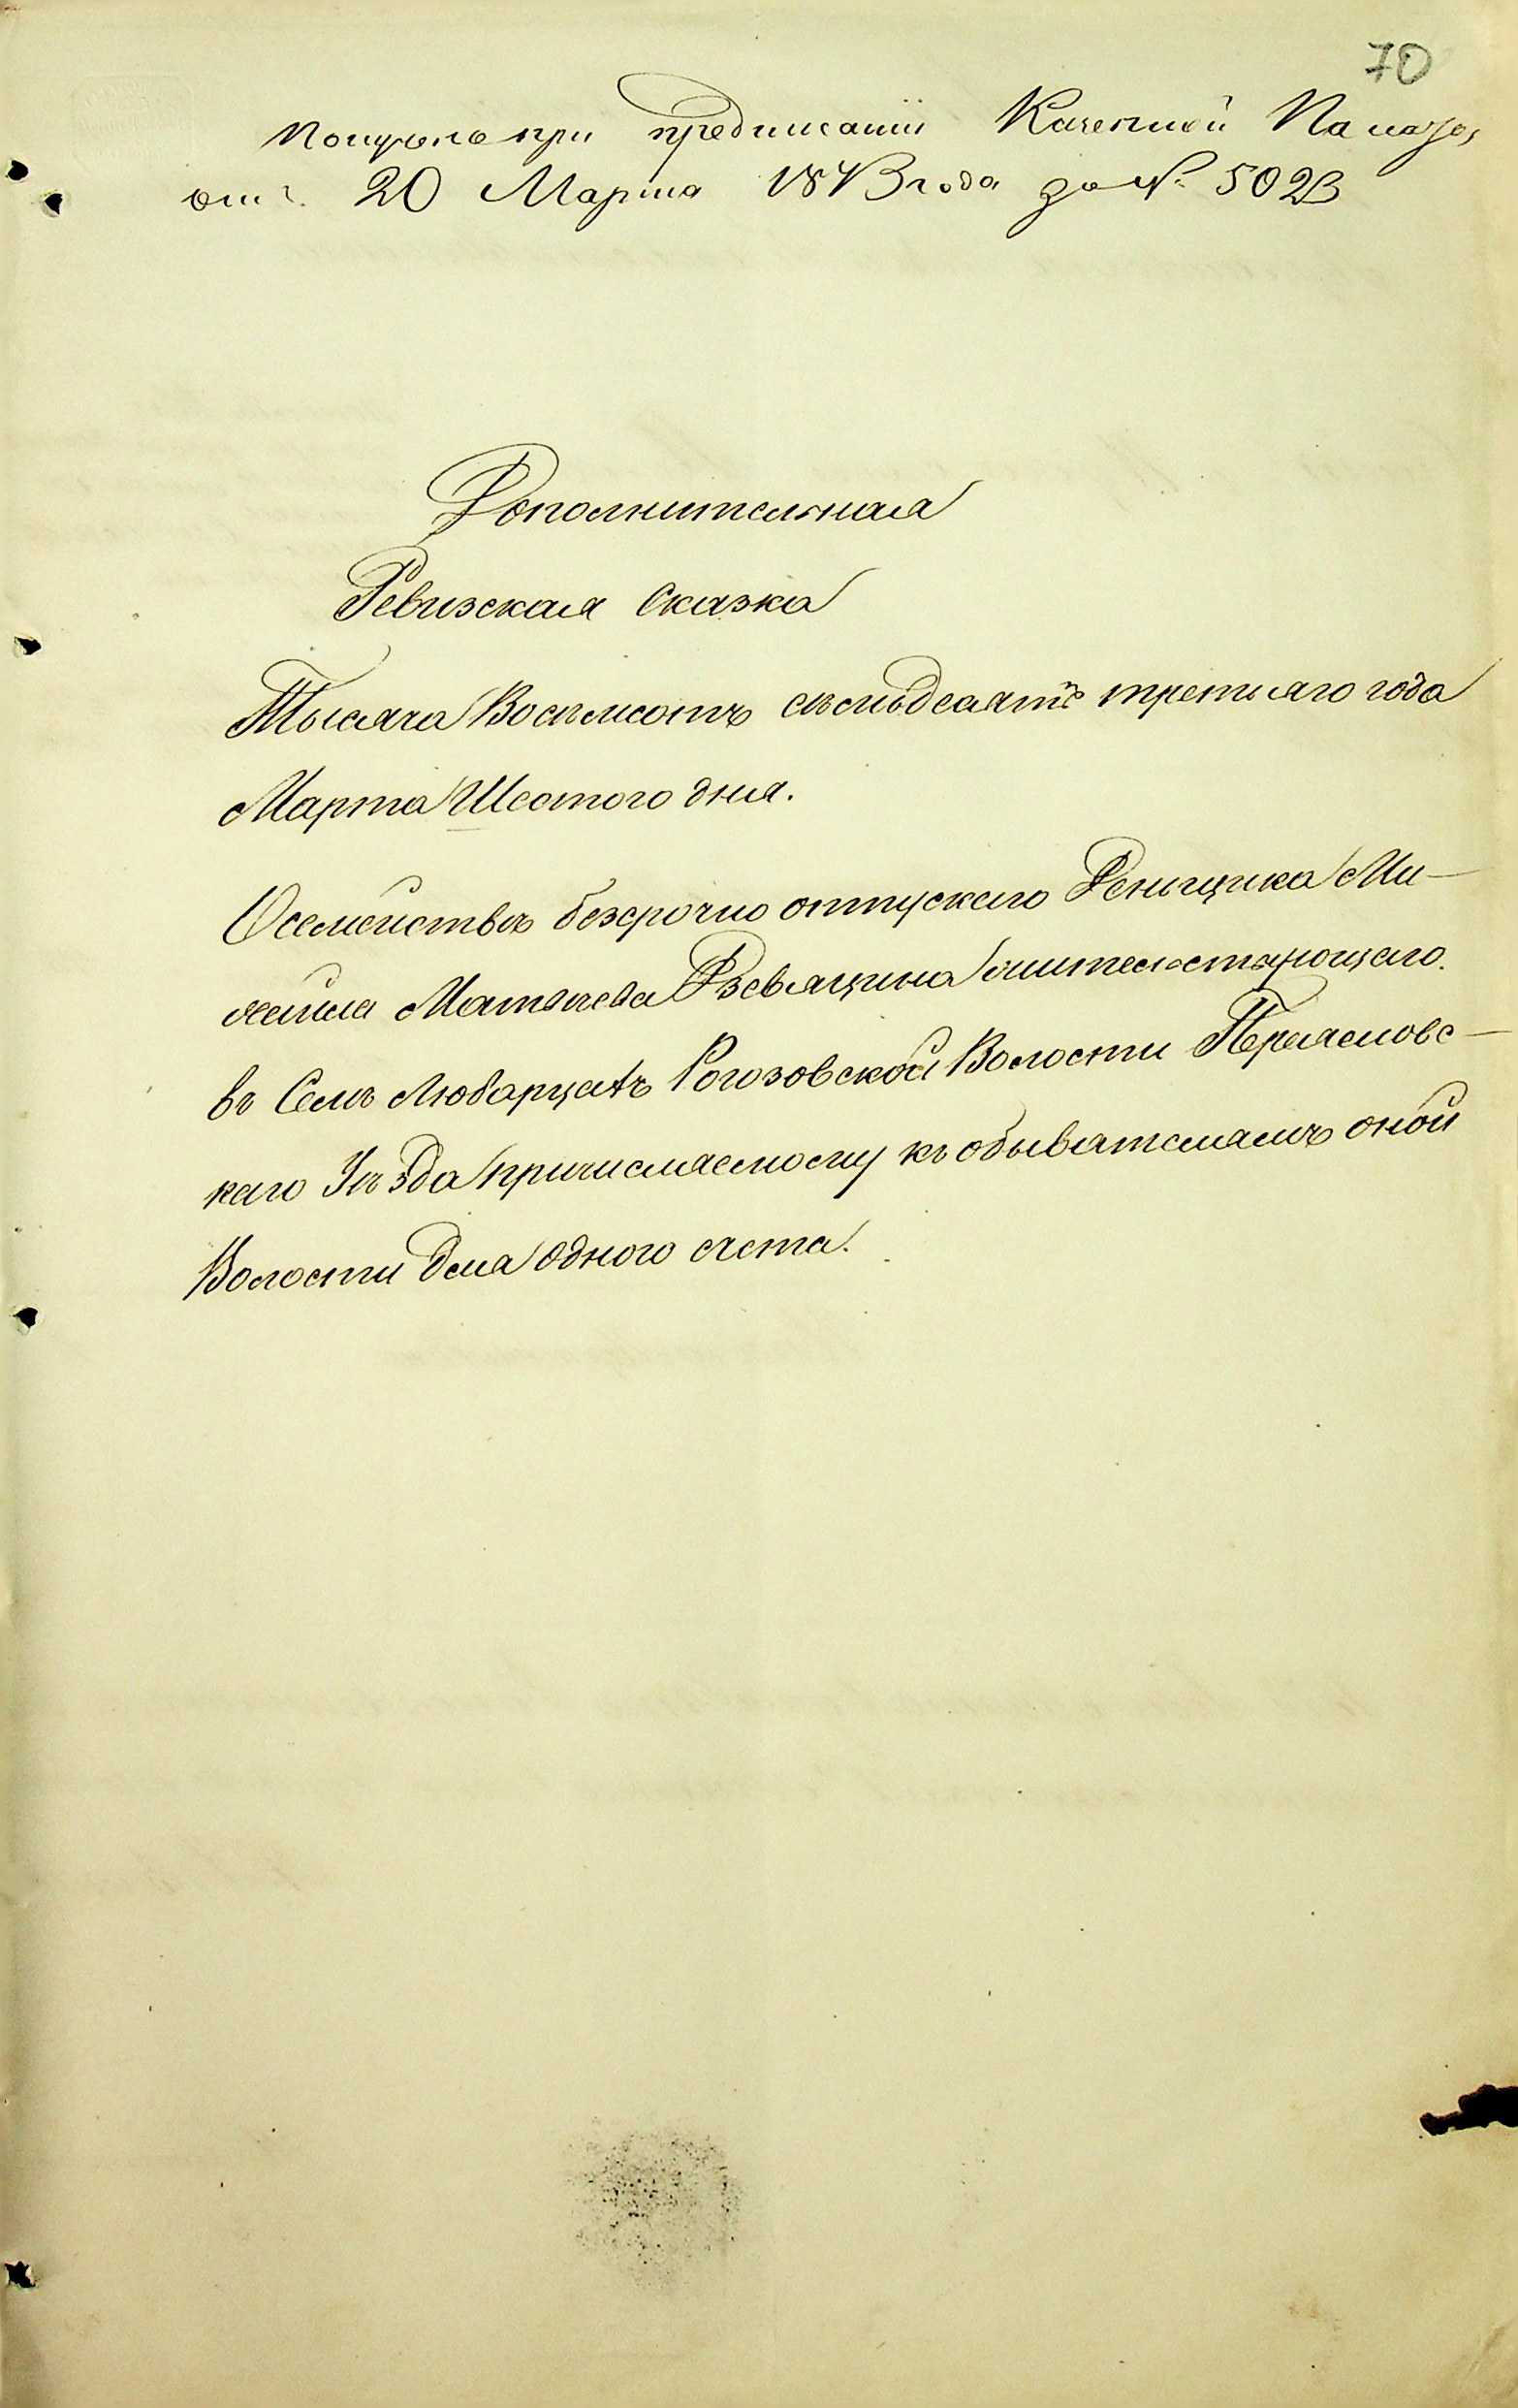 70
Получено при предписаніи Казенной Палаты
отъ 20 Марта 1873 года за № 5023
Дополнительная
Ревизская Сказка
Тысяча Восемсотъ семьдесятъ третьяго года
Марта Шестого дня.
О семействѣ безсрочно отпускнаго Деньщика Ми-
хаила Матвѣева жительствующаго
въ Селѣ Любарцахъ Рогозовской Волости Переяславс-
каго Уѣзда причисляемому къ обывателямъ оной
Волости для одного счета.